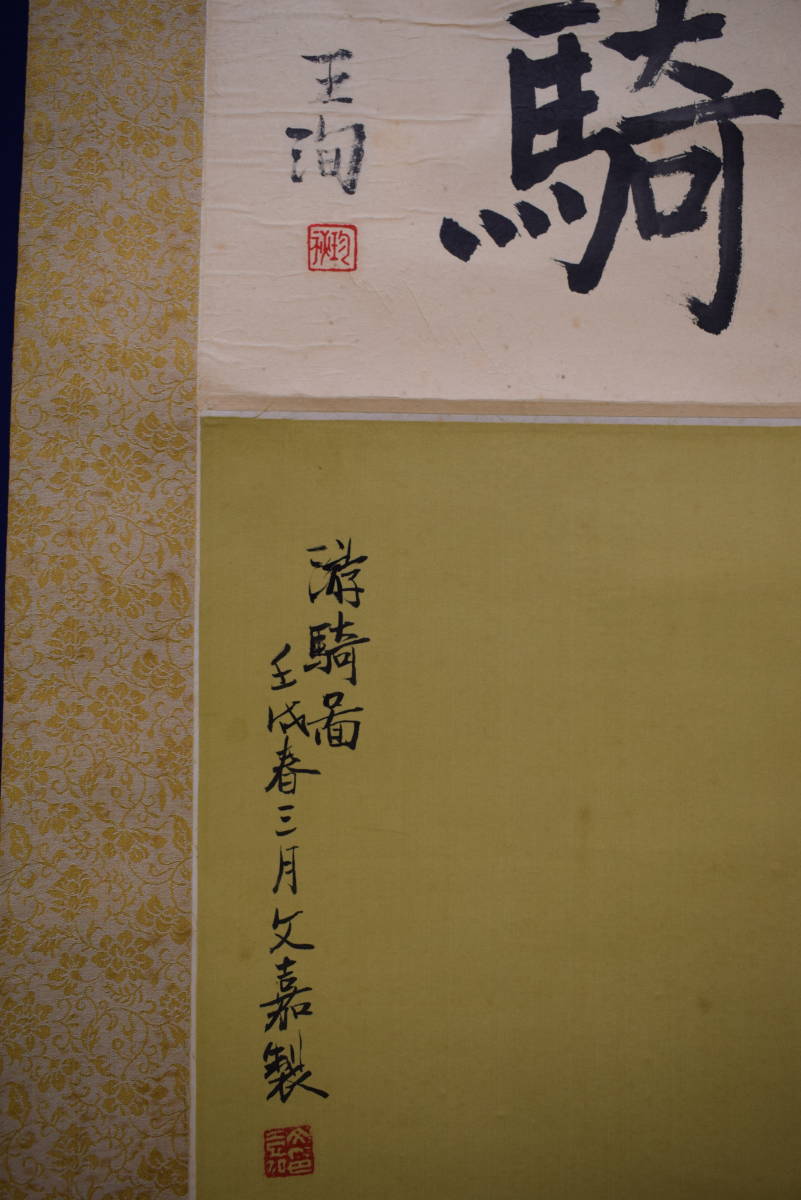 騎
王洵
珍秘
游騎啚
壬戌春三月文嘉製